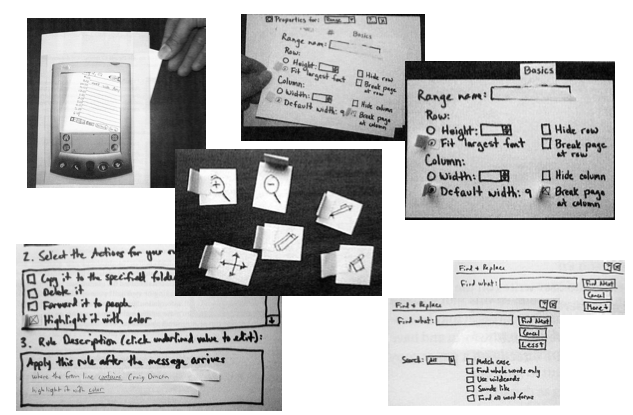 Properties for: Range
Basics
Range name:
Row:
Height:
Fit largest font
Hide row
Break page
at row
Column:
Width:
Default width: 9
Hide column
Break page
at column
Basics
Range name:
Row:
Height:
Fit largest font
Hide row
Break page
at row
Column:
Width:
Default width: 9
Hide column
Break page
at column
2. Select the Actions for your
Copy it to the specified folder
Delete it
Forward it to people
Highlight it with color
3. Rule Description (click underlined value to edit):
Apply this rule after the message arrives
where the from line contains Craig Duncan
highlight it with color
Find & Replace
Find what:
Find Next
Cancel
More↓
Find & Replace
Find what:
Find Next
Cancel
Less↑
Search: All
Match case
Find whole words only
Use wildcards
Sounds like
Find all word forms